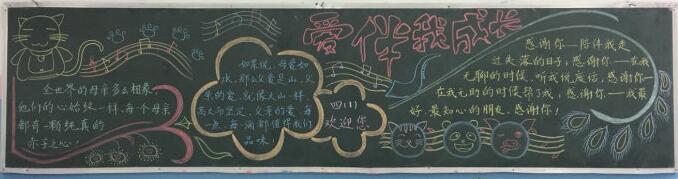 爱伴我成长
全世界的母亲多么相象
他们的心始终一样，每个母亲
都有一颗纯真的
赤子之心！
如果说，母爱如
水，那么父爱是山，父
亲的爱，就像大山一样，
高大而坚定，父亲的爱，每
一点，每一滴都值得我们
品味！
四川
欢迎您
感谢你——陪伴我走
过失落的日子，感谢你——在我
无聊的时候，听我说废话，感谢你——
在我无助的时候帮了我，感谢你——我最
好、最知心的朋友，感谢你！